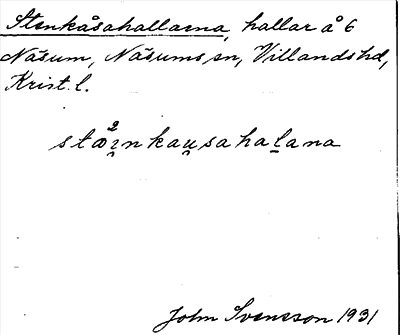 Stenkåsahallarna, hallar å 6
Näsum, Näsums sn, Villands hd,
Krist. l.
stæi̯nkau̯sahaḻana
John Svensson 1931